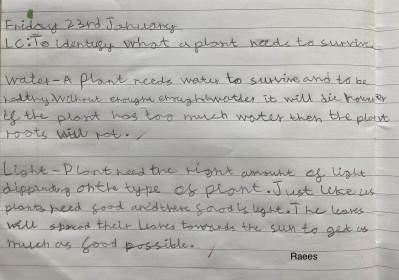 Friday 23rd January
LC: To identify what a plant needs to survive
Water - A plant needs water to survive and to be
healthy without enough water it will die however
if the plant has too much water then the plant
roots will rot.
Light - Plant need the right amount of light
dippanding on the type of plant. Just like us
plants need food and there food is light. The leaves
will spread their leaves towards the sun to get as
much as food possible.
Raees